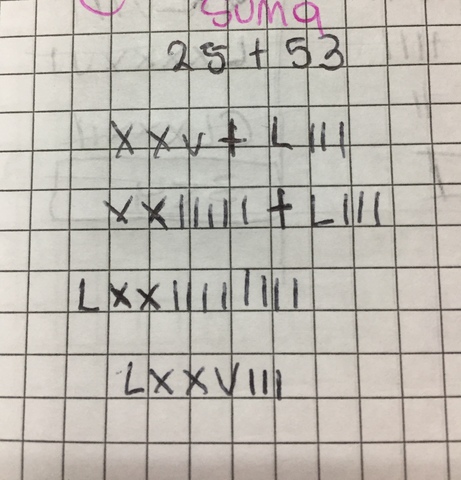 Suma
25 + 53
XXV + LIII
XXIIIII + LIII
LXXIIIIIIII
LXXVIII